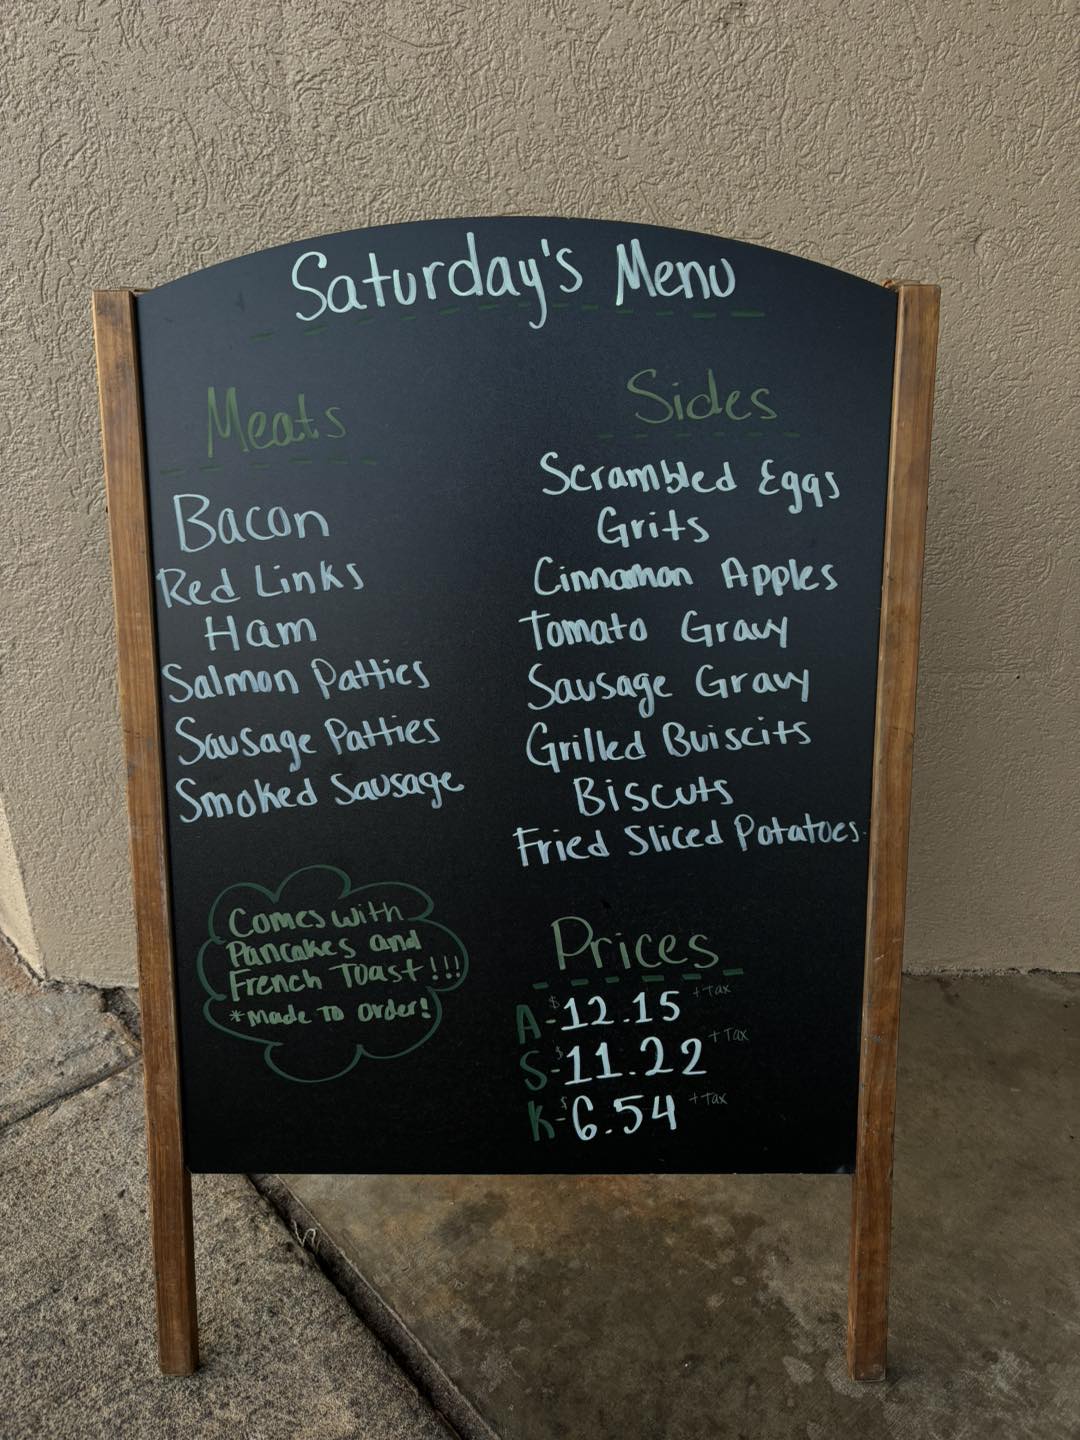 Saturday's Menu
Meats
Bacon
Red Links
Ham
Salmon Patties
Sausage Patties
Smoked Sausage
Comes with
Pancakes and
French Toast!!!
*Made To Order!
Sides
Scrambled Eggs
Grits
Cinnamon Apples
Tomato Gravy
Sausage Gravy
Grilled Buiscits
Biscuts
Fried Sliced Potatoes
Prices
A-$12.15 + Tax
S-$11.22 + Tax
K-$6.54 + Tax